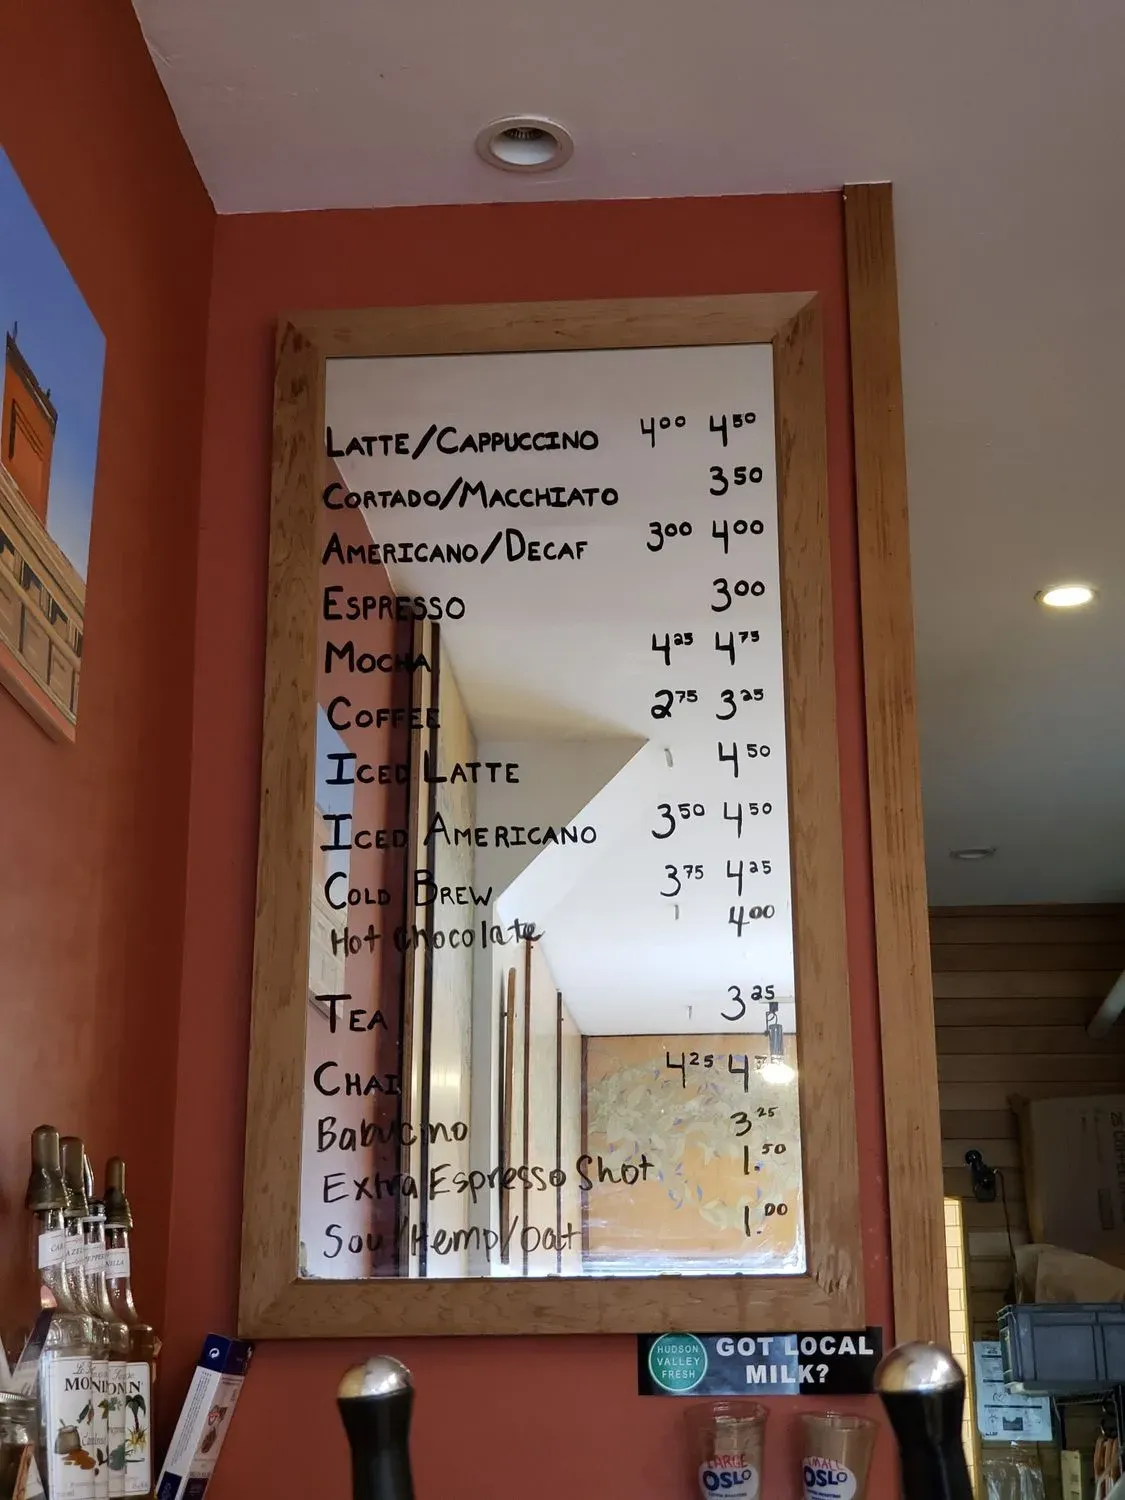 LATTE/CAPPUCCINO 4⁰⁰ 4⁵⁰
CORTADO/MACCHIATO 3⁵⁰
AMERICANO/DECAF 3⁰⁰ 4⁰⁰
ESPRESSO 3⁰⁰
MOCHA 4²⁵ 4⁷⁵
COFFEE 2⁷⁵ 3²⁵
ICED LATTE 4⁵⁰
ICED AMERICANO 3⁵⁰ 4⁵⁰
COLD BREW 3⁷⁵ 4²⁵
Hot chocolate 4⁰⁰
TEA 3²⁵
CHAI 4²⁵ 4
Babycino 3²⁵
Extra Espresso Shot 1.⁵⁰
Soy/Hemp/oat 1.⁰⁰
HUDSON
VALLEY
FRESH
GOT LOCAL
MILK?
LARGE
OSLO
SMALL
OSLO
MONIN